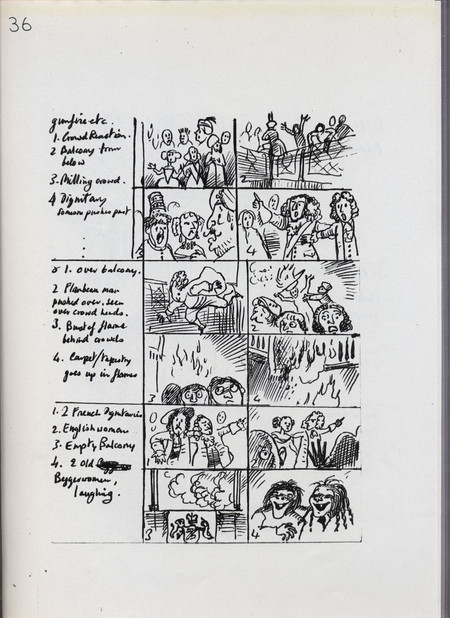 36
gunfire etc.
1. Crowd Reaction.
2 Balcony from
below
3. Milling crowd.
4 Dignitary
someone pushes past
1. over balcony.
2 man
pushed over. seen
over crowd heads.
3. Burst of flame
behind crowds
4. Carpet/tapestry
goes up in flames
1. 2 French Dignitaries
2. Englishwoman
3. Empty Balcony
4. 2 old
Beggarwomen,
laughing.
2
4
2
3
4
3
4